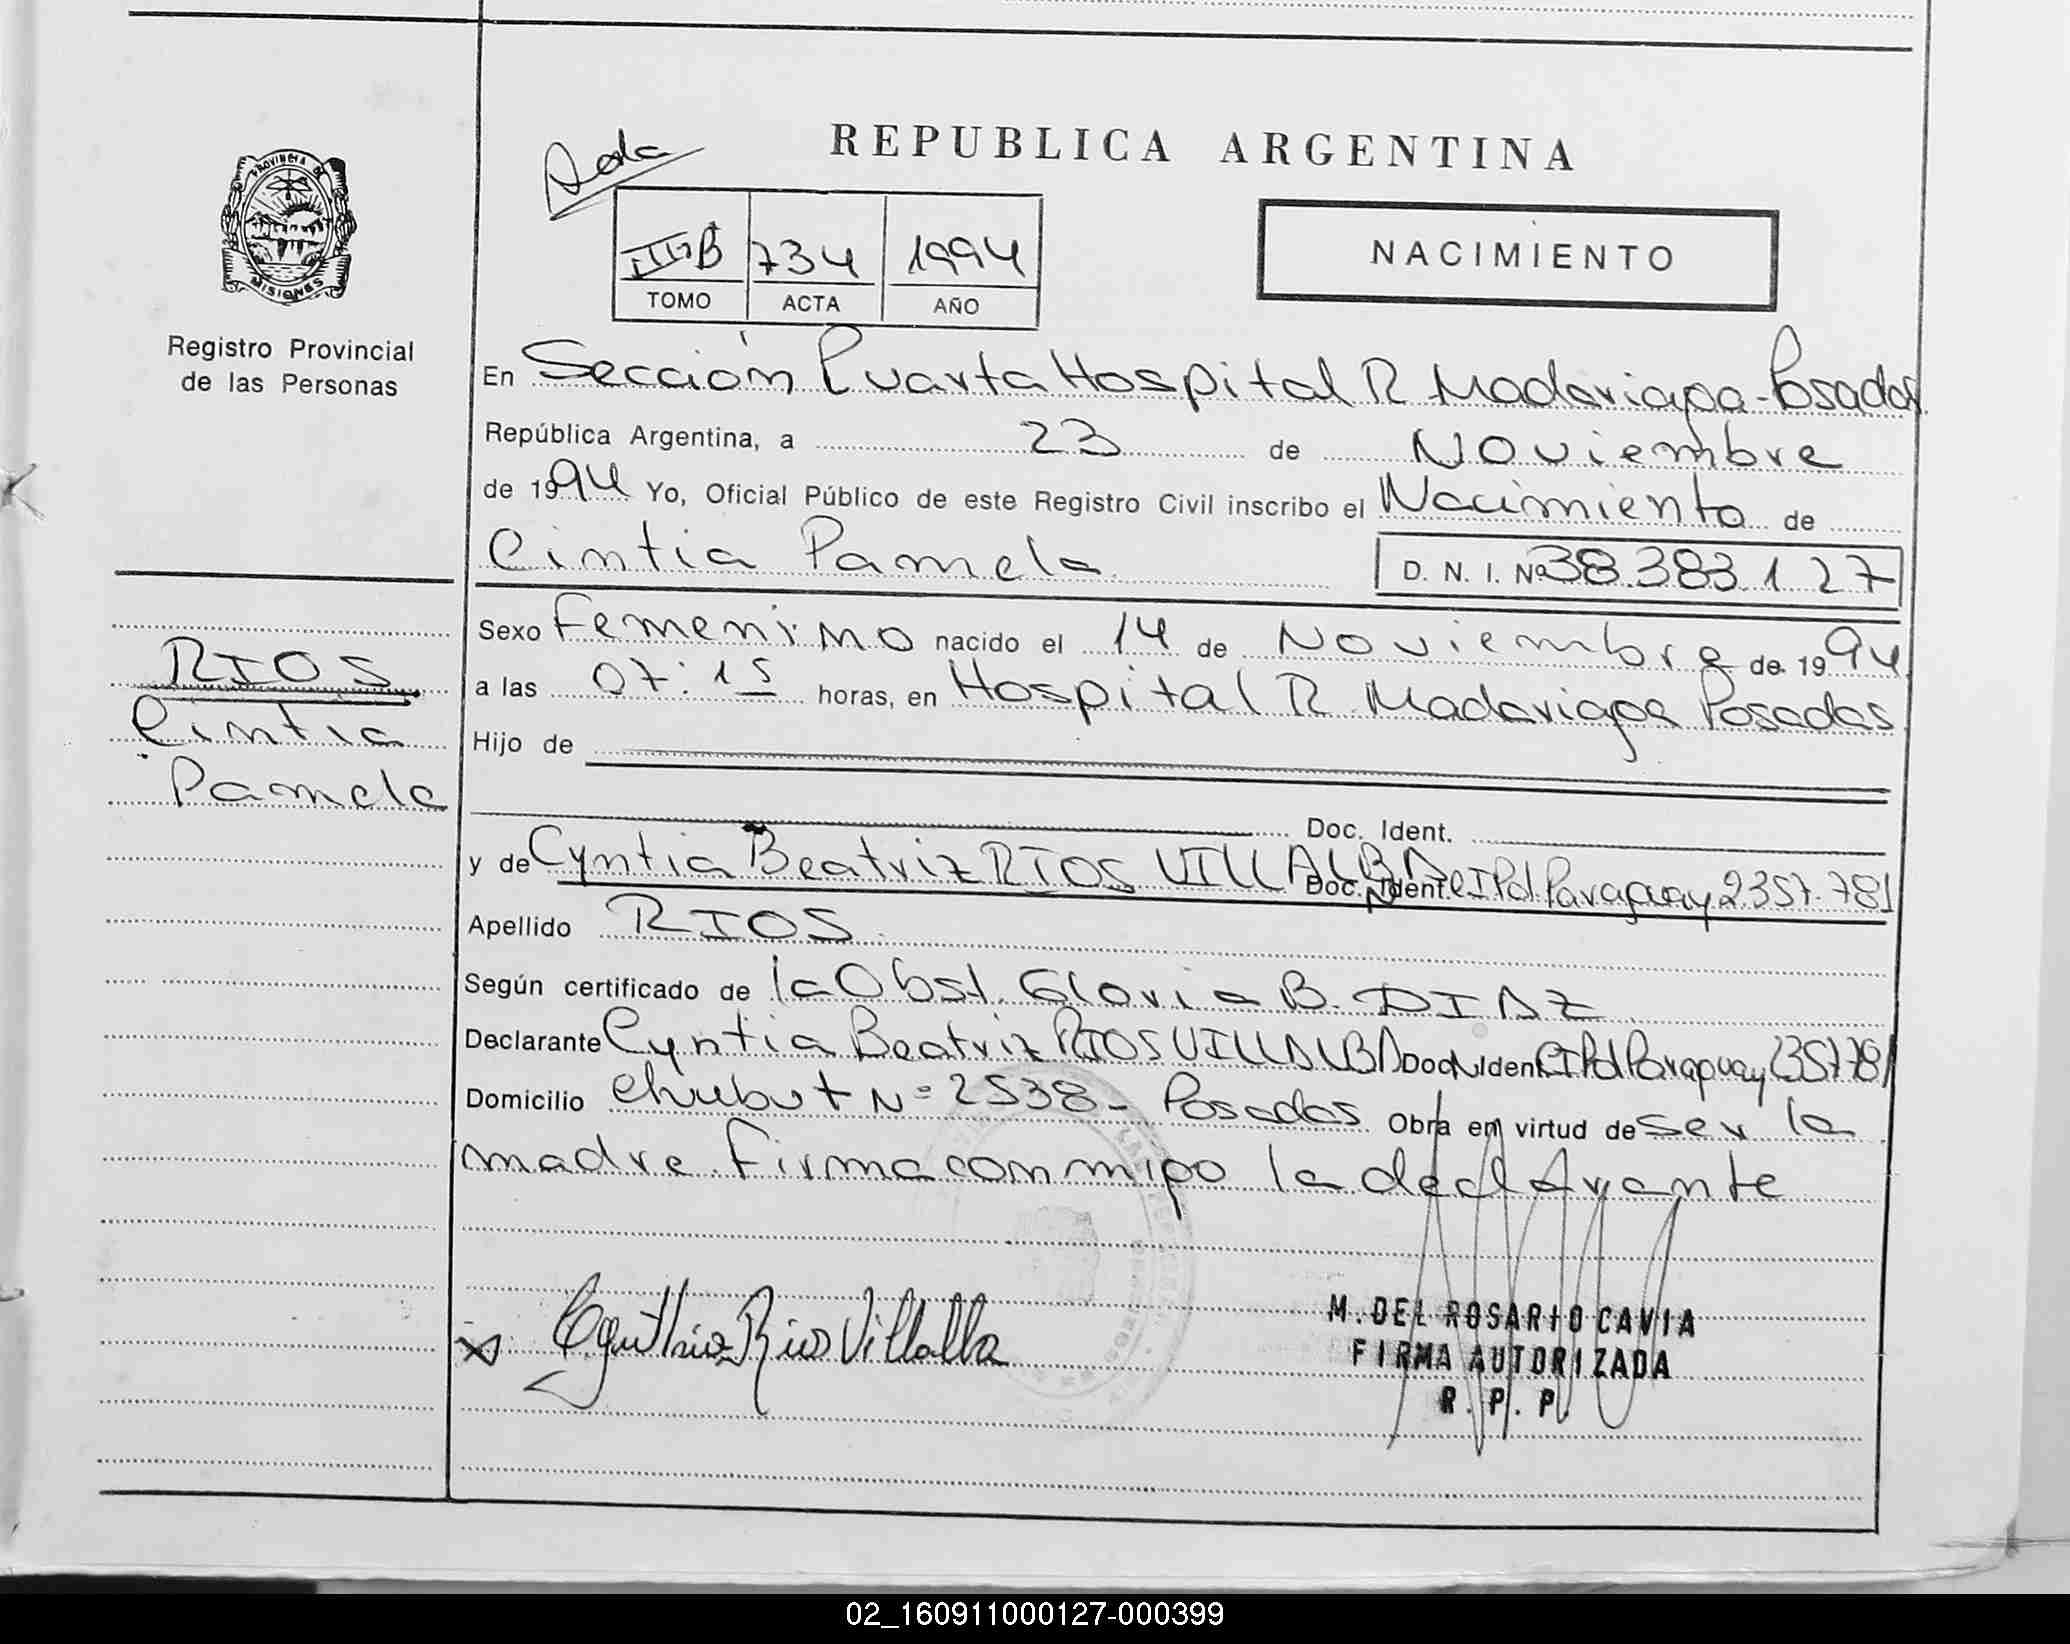 REPUBLICA ARGENTINA
PROVINCIA DE
MISIONES
Registro Provincial
de las Personas
IIIºB 734 1994
TOMO ACTA AÑO
NACIMIENTO
En Sección Cuarta Hospital R Madariaga-Posadas
República Argentina, a 23 de Noviembre
de 1994 Yo, Oficial Público de este Registro Civil inscribo el Nacimiento de
Cintia Pamela D. N. I. Nº 38.383.127
RIOS
Cintia
Pamela
Sexo Femenino nacido el 14 de Noviembre de 1994
a las 07:15 horas, en Hospital R. Madariaga Posadas
Hijo de
Doc. Ident.
y de Cyntia Beatriz RIOS VILLALBA Doc. Ident. CIPdl Paraguay 2.357.781
Apellido RIOS
Según certificado de la Obst. Gloria B. DIAZ
Declarante Cyntia Beatriz RIOS VILLALBA Doc. Ident. CIPdl Paraguay 2357781
Domicilio Chubut Nº 2538 - Posadas Obra en virtud de ser la
madre. Firma conmigo la declarante
Cynthia Rios Villalba
M. DEL ROSARIO CAVIA
FIRMA AUTORIZADA
R. P. P.
02_160911000127-000399